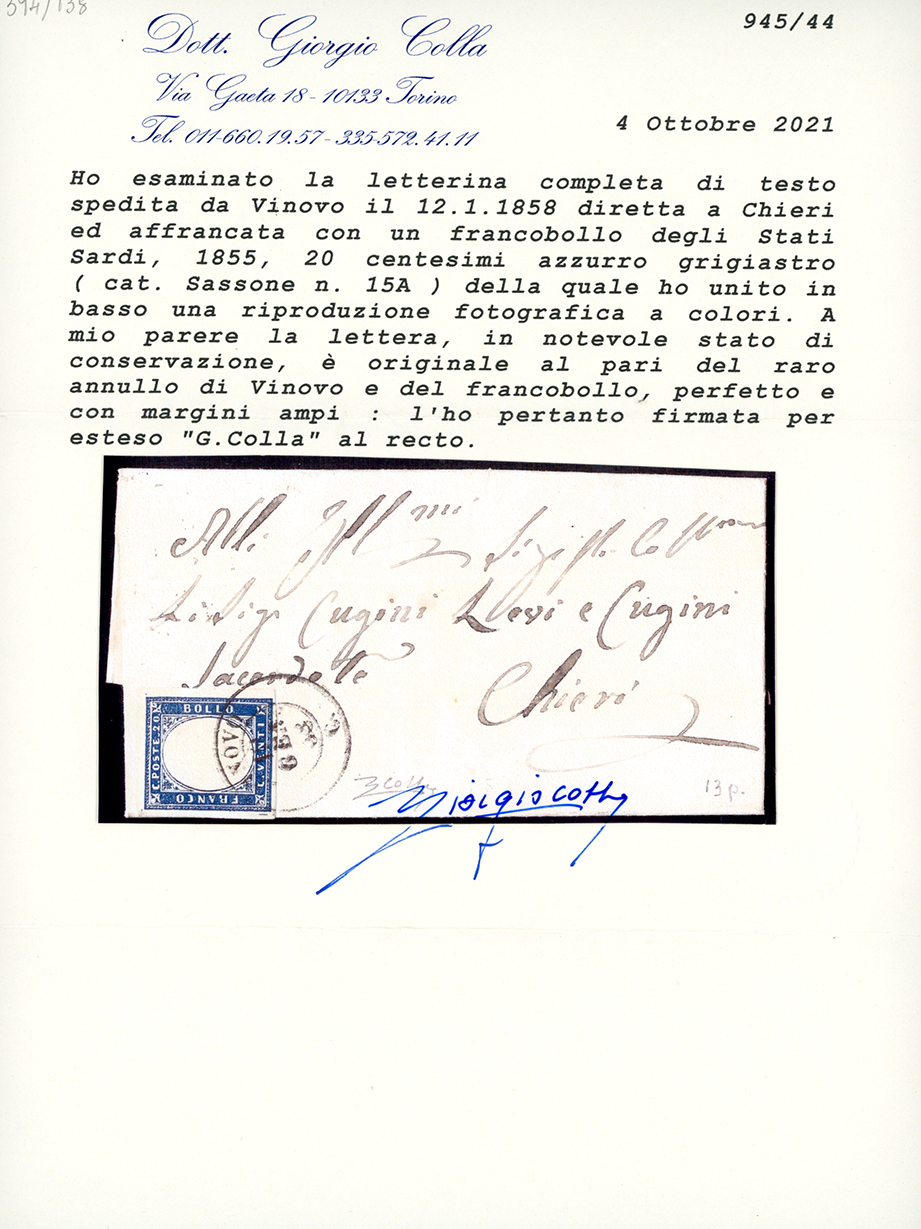 594/138
945/44
Dott. Giorgio Colla
Via Gaeta 18 - 10133 Torino
Tel. 011-660.19.57 - 335-572.41.11
4 Ottobre 2021
Ho esaminato la letterina completa di testo
spedita da Vinovo il 12.1.1858 diretta a Chieri
ed affrancata con un francobollo degli Stati
Sardi, 1855, 20 centesimi azzurro grigiastro
( cat. Sassone n. 15A ) della quale ho unito in
basso una riproduzione fotografica a colori. A
mio parere la lettera, in notevole stato di
conservazione, è originale al pari del raro
annullo di Vinovo e del francobollo, perfetto e
con margini ampi : l'ho pertanto firmata per
esteso "G.Colla" al recto.
Cugini Levi e Cugini
Chieri
BOLLO
C.POSTE 20
C.VENTI
FRANCO
13 p.